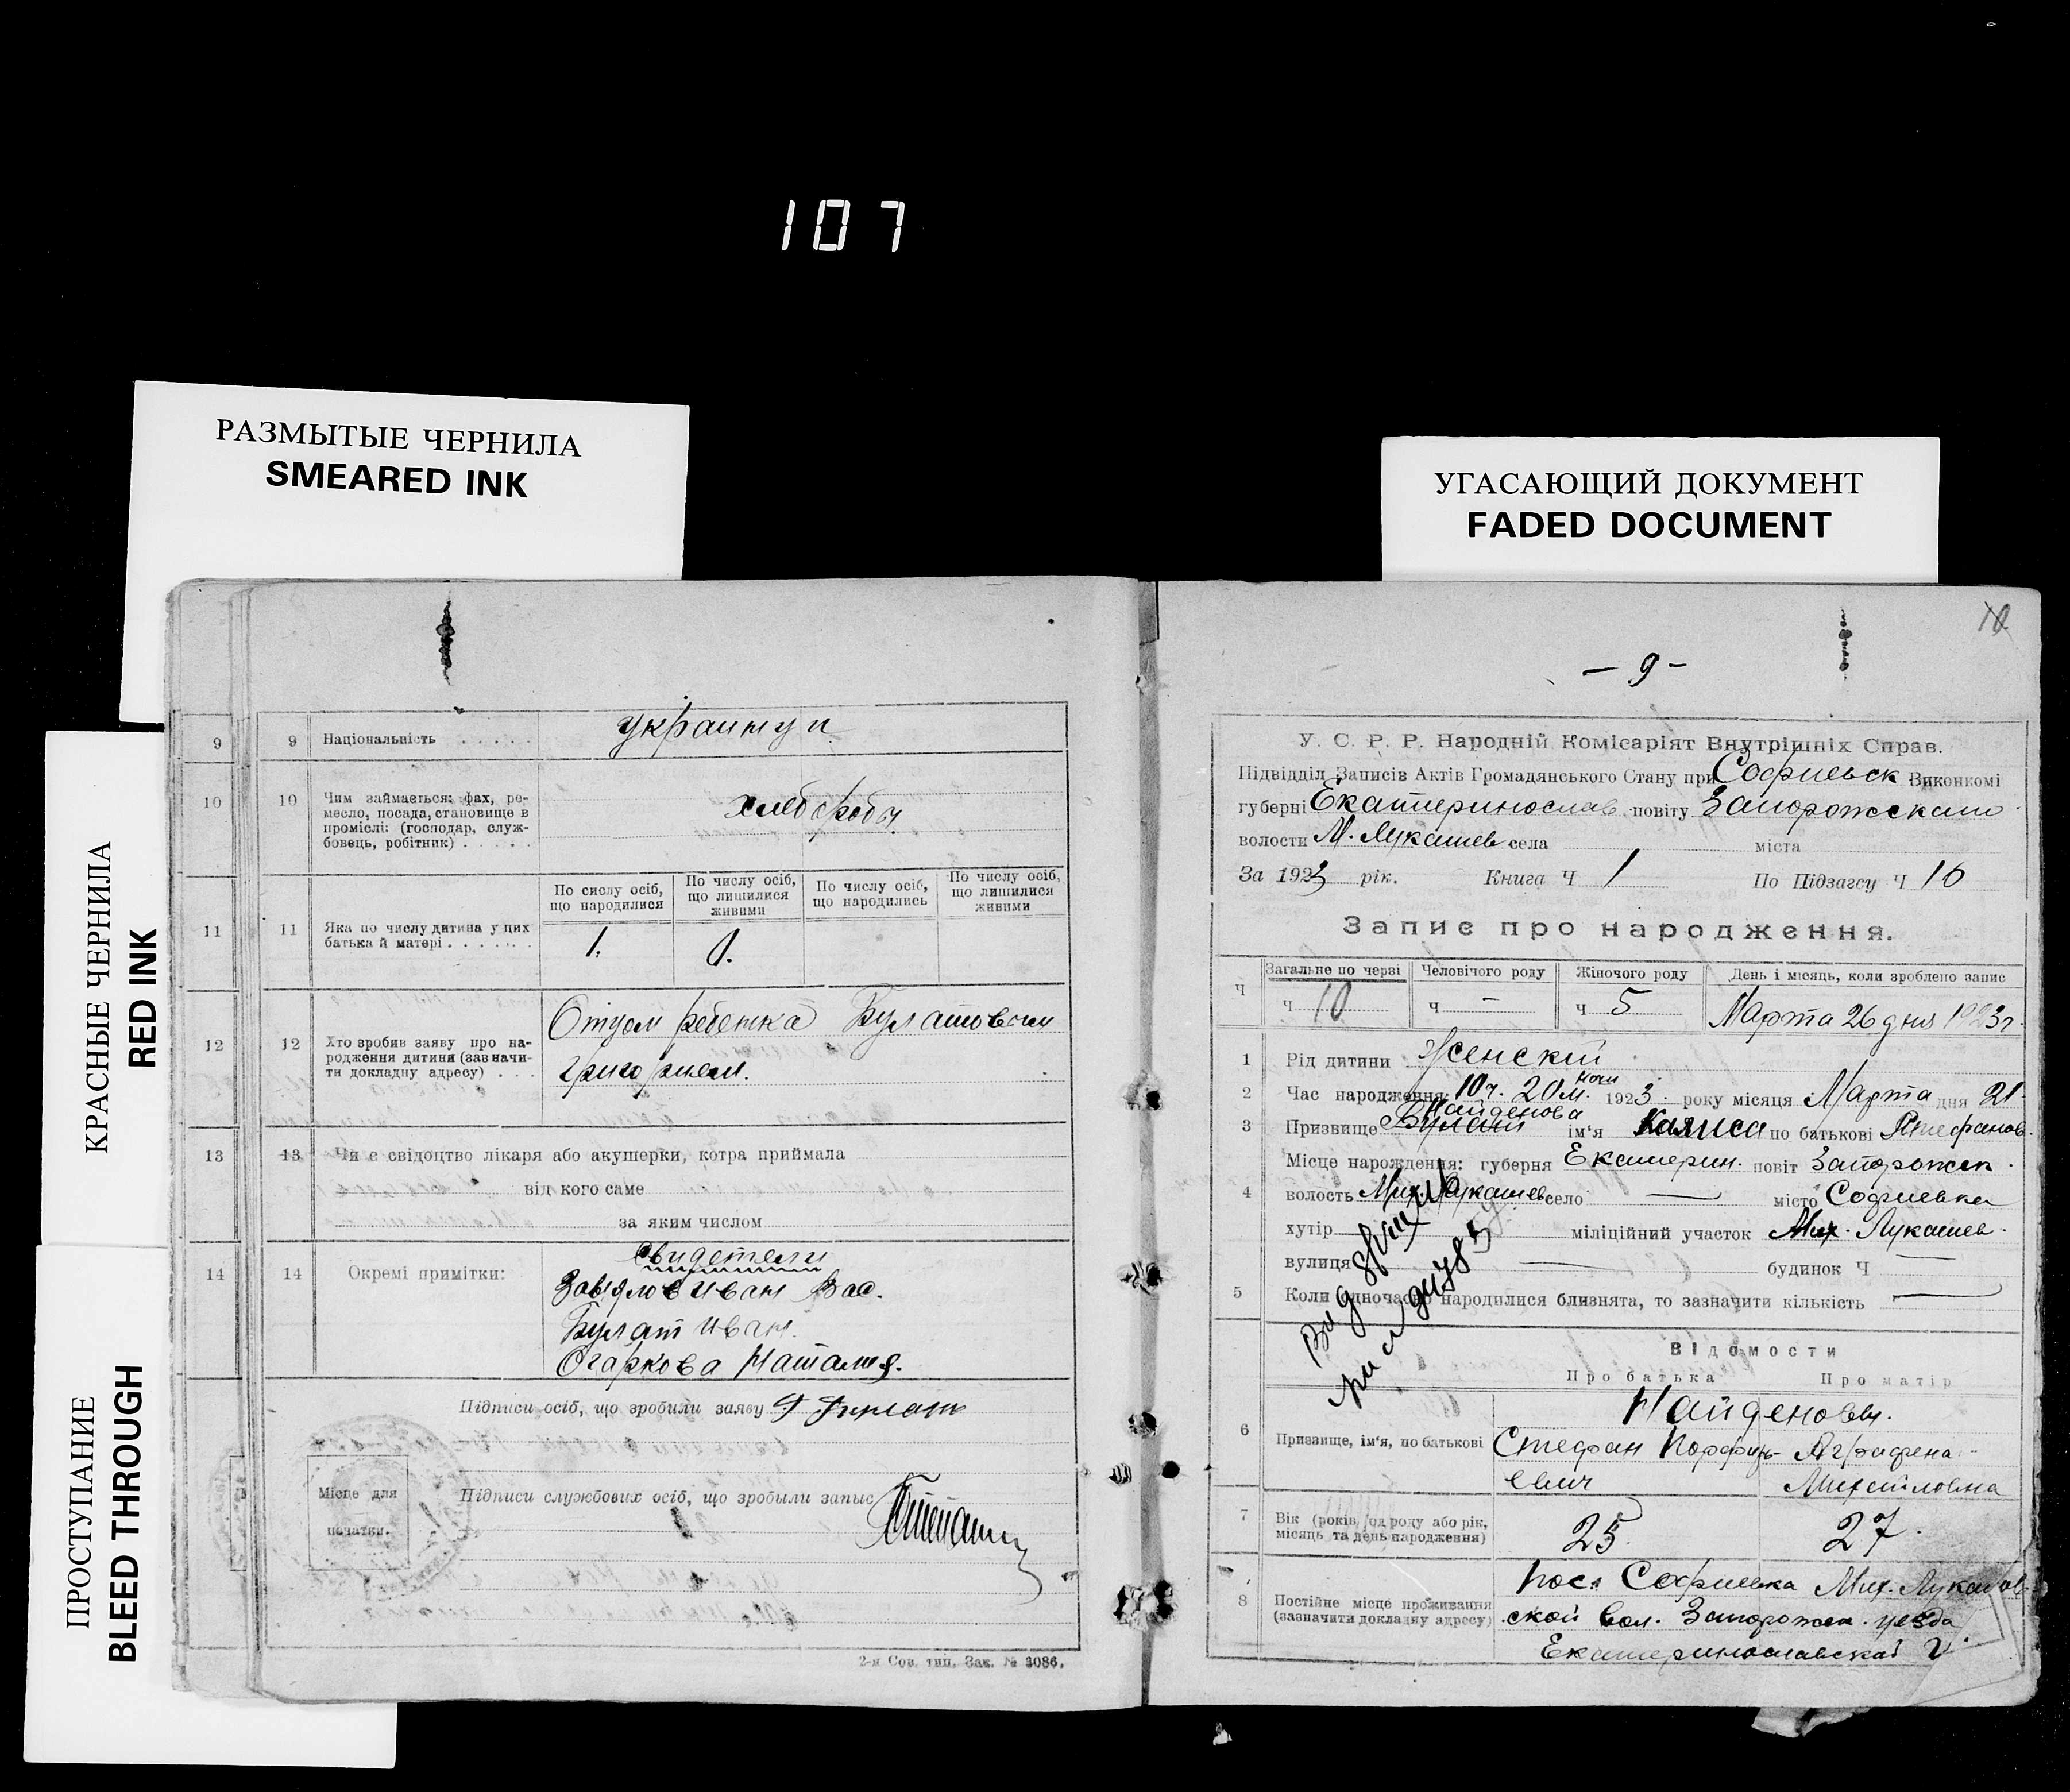 107
РАЗМЫТЫЕ ЧЕРНИЛА
SMEARED INK
УГАСАЮЩИЙ ДОКУМЕНТ
FADED DOCUMENT
КРАСНЫЕ ЧЕРНИЛА
RED INK
ПРОСТУПАНИЕ
BLEED THROUGH
9 9 Національність украинцы
10 10 Чим займається: фах, ре-
месло, посада, становище в
проміслі: (господар, служ-
бовець, робітник) хлеборобы
11 11 Яка по числу дитина у цих
батька й матері
По сислу осіб, що народилися
По числу осіб, що лишилися живими
По числу осіб, що народились
По числу осіб, що лишилися живими
1. 1.
12 12 Хто зробив заяву про на-
родження дитини (зазначи-
ти докладну адресу)
Отцом ребенка Булатовым
Григорием.
13 13 Чи є свідоцтво лікаря або акушерки, котра приймала
від кого саме
за яким числом
14 14 Окремі примітки:
Свидетели
Завялов Иван Вас.
Булат Иван.
Огаркова Наталия.
Підписи осіб, що зробили заяву
Місце для
печатки.
Підписи службових осіб, що зробыли запыс
2-я Сов. тип. Зак. № 3086.
10
— 9 —
У. С. Р. Р. Народній Комісаріят Внутрішніх Справ.
Підвідділ Записів Актів Громадянського Стану при Софиевск Виконкомі
губерні Екатеринослав повіту Запорожского
волости М. Лукашев села міста
За 1923 рік. Книга Ч 1 По Підзагсу Ч 10
Запис про народження.
Ч Загальне по черзі Человічого роду Жіночого роду День і місяць, коли зроблено запис
Ч 10 Ч — Ч 5 Марта 26 дня 1923 г.
1 Рід дитини Женский
2 Час народження: 10 ч. 20 м. ночи 1923 року місяця Марта дня 21
3 Призвище Булат Найденова ім'я Калиса по батькові Стефанов.
Місце нарождення: губерня Екатерин. повіт Запорожск.
4 волость Мих. Лукашев село — місто Софиевка
хутір міліційний участок Мих. Лукашев.
вулиця — будинок Ч —
5 Коли одночасно народилися близнята, то зазначити кількість —
Відомости
Про батька Про матір
Найденовы.
6 Призвище, ім'я, по батькові Стефан Порфирь- Аграфена
евич Михайловна
7 Вік (років од роду або рік,
місяць та день народження) 25 27.
8 Постійне місце проживання
(зазначити докладну адресу)
пос. Софиевка Мих. Лукашов-
ской вол. Запорожск. уезда
Екатеринославской г.